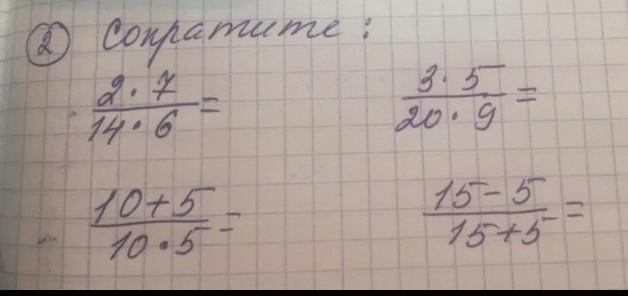 ② Сократите:
2·7/14·6= 3·5/20·9=
10+5/10·5= 15-5/15+5=